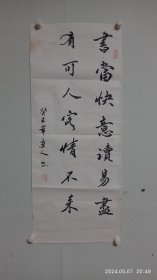 書當快意讀易盡
有可人客情不来
2024.05.07 20:49